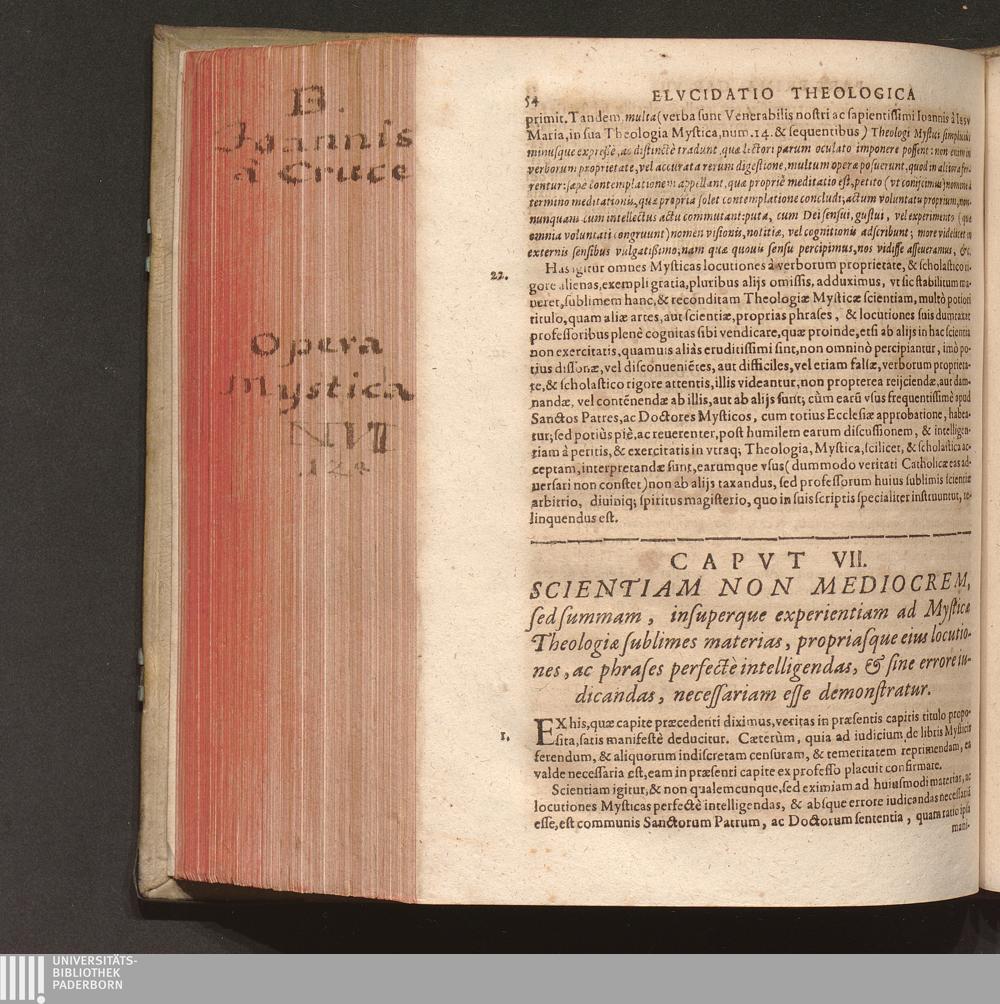 B.
Joannis
à Cruce
Opera
Mystica
54
ELVCIDATIO THEOLOGICA
primit. Tandem multa (verba sunt Venerabilis nostri ac sapientissimi Ioannis à Iesv
Maria, in sua Theologia Mystica, num. 14. & sequentibus) Theologi Mystici
minusque expressè, ac distinctè tradunt, quæ lectori parum oculato imponere possent: non enim in
verborum proprietate, vel accurata rerum digestione, multum operæ posuerunt, quod in
rentur: sæpè contemplationem appellant, quæ propriè meditatio est, petito (vt conijcimus) nomine à
termino meditationis, quæ propria solet contemplatione concludi; actum voluntatis proprium, non-
nunquam cum intellectus actu commutant: putà, cum Dei sensui, gustui, vel experimento (quæ
omnia voluntati congruunt) nomen visionis, notitiæ, vel cognitionis adscribunt; more videlicet in
externis sensibus vulgatissimo; nam quæ quouis sensu percipimus, nos vidisse asseueramus, &c.
22.
Has igitur omnes Mysticas locutiones à verborum proprietate, & scholastico ri-
gore alienas, exempli gratia, pluribus alijs omissis, adduximus, vt sic stabilitum ma-
neret, sublimem hanc, & reconditam Theologiæ Mysticæ scientiam, multò potiori
titulo, quam aliæ artes, aut scientiæ, proprias phrases, & locutiones suis dumtaxat
professoribus plenè cognitas sibi vendicare, quæ proinde, etsi ab alijs in hac scientia
non exercitatis, quamuis aliàs eruditissimi sint, non omninò percipiantur, imò po-
tius dissonæ, vel disconueniẽtes, aut difficiles, vel etiam falsæ, verborum proprieta-
te, & scholastico rigore attentis, illis videantur, non propterea reijciendæ, aut dam-
nandæ, vel contẽnendæ ab illis, aut ab alijs sunt; cùm earũ vsus frequentissimè apud
Sanctos Patres, ac Doctores Mysticos, cum totius Ecclesiæ approbatione, habea-
tur; sed potiùs piè, ac reuerenter, post humilem earum discussionem, & intelligen-
tiam à peritis, & exercitatis in vtraq; Theologia, Mystica, scilicet, & scholastica ac-
ceptam, interpretandæ sunt, earumque vsus (dummodo veritati Catholicæ eas ad-
uersari non constet) non ab alijs taxandus, sed professorum huius sublimis scientiæ
arbitrio, diuiniq; spiritus magisterio, quo in suis scriptis specialiter instruuntur, re-
linquendus est.
CAPVT VII.
SCIENTIAM NON MEDIOCREM,
sed summam, insuperque experientiam ad Mysticæ
Theologiæ sublimes materias, propriasque eius locutio-
nes, ac phrases perfectè intelligendas, & sine errore iu-
dicandas, necessariam esse demonstratur.
1.
EX his, quæ capite præcedenti diximus, veritas in præsentis capitis titulo propo-
sita, satis manifestè deducitur. Cæterùm, quia ad iudicium de libris Mysticis
ferendum, & aliquorum indiscretam censuram, & temeritatem reprimendam, ea
valde necessaria est, eam in præsenti capite ex professo placuit confirmare.
Scientiam igitur, & non qualemcunque, sed eximiam ad huiusmodi materias, ac
locutiones Mysticas perfectè intelligendas, & absque errore iudicandas necessariã
esse, est communis Sanctorum Patrum, ac Doctorum sententia, quam ratio ipsa
mani-
UNIVERSITÄTS-
BIBLIOTHEK
PADERBORN